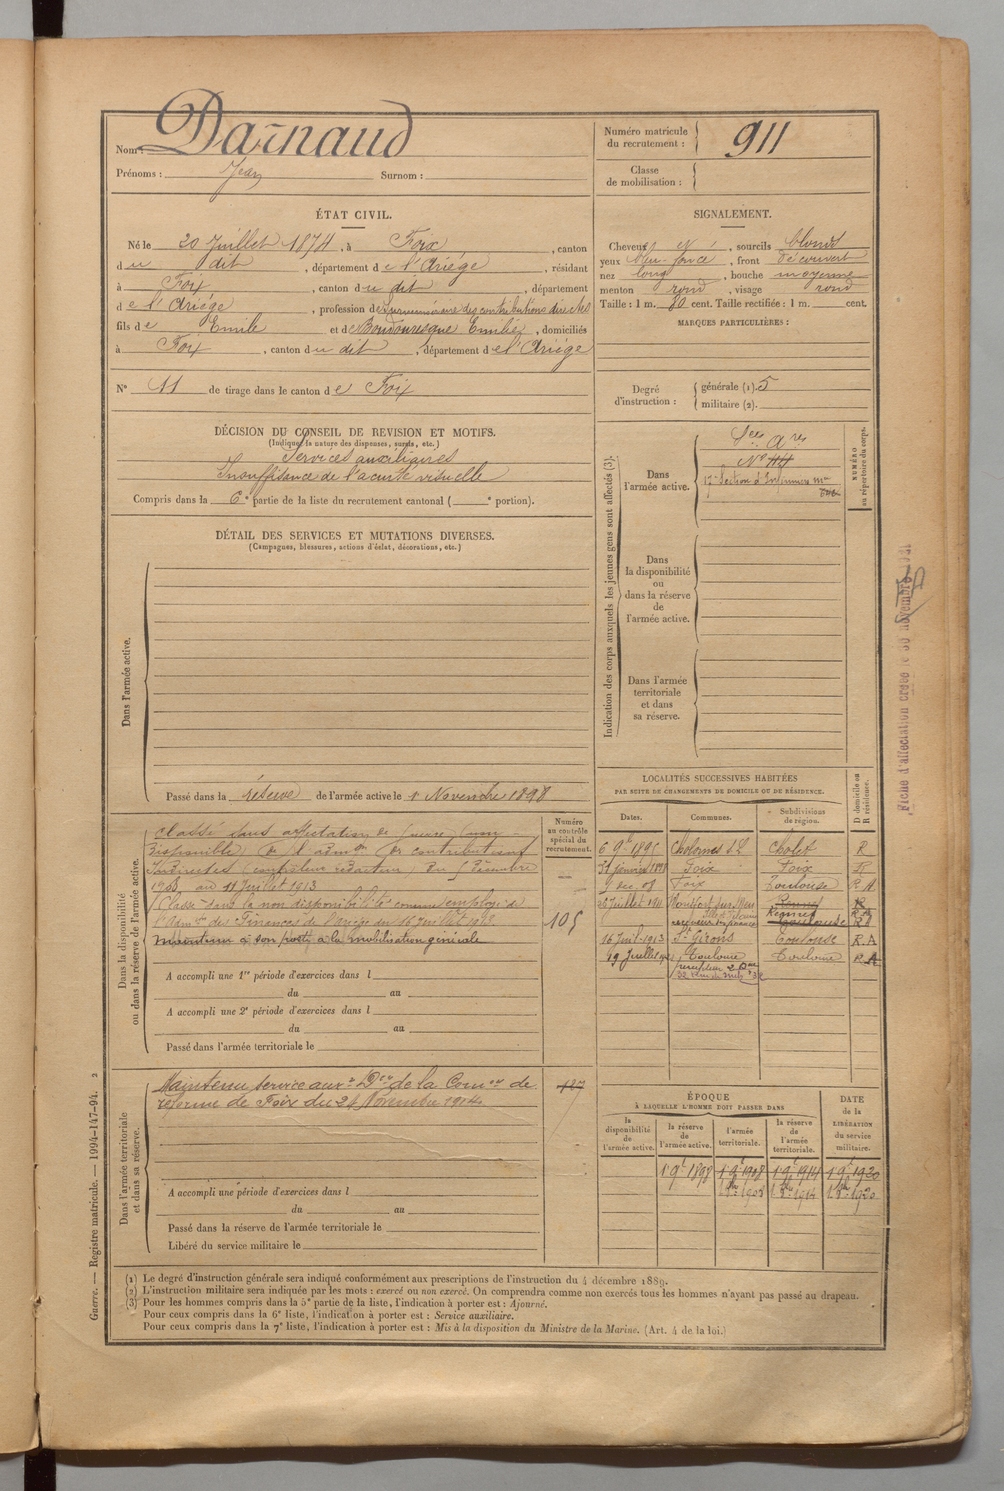 Nom : Darnaud
Prénoms : Jean Surnom :
Numéro matricule du recrutement : 911
Classe de mobilisation :
ÉTAT CIVIL.
Né le 20 Juillet 1874, à Foix, canton
du dit, département de l'Ariége, résidant
à Foix, canton du dit, département
de l'Ariége, profession de Surnuméraire des contributions directes
fils de Emile et de Boudouresque Emilie, domiciliés
à Foix, canton du dit, département de l'Ariége
N° 11 de tirage dans le canton de Foix
SIGNALEMENT.
Cheveux, sourcils blonds
yeux bleu-foncé, front découvert
nez long, bouche moyenne
menton rond, visage rond
Taille : 1 m. 70 cent. Taille rectifiée : 1 m. cent.
MARQUES PARTICULIÈRES :
Degré d'instruction : générale (1). 5
militaire (2).
DÉCISION DU CONSEIL DE REVISION ET MOTIFS.
(Indiquer la nature des dispenses, sursis, etc.)
Services auxiliaires
Insuffisance de l'acuité visuelle
Compris dans la 6e partie de la liste du recrutement cantonal ( e portion).
DÉTAIL DES SERVICES ET MUTATIONS DIVERSES.
(Campagnes, blessures, actions d'éclat, décorations, etc.)
Dans l'armée active.
Passé dans la réserve de l'armée active le 1 Novembre 1898
Indication des corps auxquels les jeunes gens sont affectés (3).
NUMÉRO au répertoire du corps.
Dans l'armée active.
17e Section d'Infirmiers
Dans la disponibilité ou dans la réserve de l'armée active.
Dans l'armée territoriale et dans sa réserve.
Fiche d'affectation créée le 30 novembre
Dans la disponibilité ou dans la réserve de l'armée active.
Numéro au contrôle spécial du recrutement.
Classé sans affectation
Disponible de l'admon des contributions
Indirectes
1908 au 11 Juillet 1913
Classé dans la non disponibilité comme employé de
l'Admon des Finances de l'Ariége du 16 Juillet 1913
Maintenu à son poste à la mobilisation générale
105
A accompli une 1re période d'exercices dans l
du au
A accompli une 2e période d'exercices dans l
du au
Passé dans l'armée territoriale le
LOCALITÉS SUCCESSIVES HABITÉES
PAR SUITE DE CHANGEMENTS DE DOMICILE OU DE RÉSIDENCE.
Dates. Communes. Subdivisions de région. D domicile ou R résidence.
Cholet R
31 janvier 1898 Foix Foix R
9 dec. 08 Foix Toulouse R A
Montfort sur Meu Rennes R
16 Juil. 1913 St Girons Toulouse R.A
19 Juillet Toulouse Toulouse R A
Dans l'armée territoriale et dans sa réserve.
Maintenu service auxre Don de la Comon de
réforme de Foix du 24 Novembre 1914
A accompli une période d'exercices dans l
du au
Passé dans la réserve de l'armée territoriale le
Libéré du service militaire le
ÉPOQUE
À LAQUELLE L'HOMME DOIT PASSER DANS
DATE de la LIBÉRATION du service militaire.
la disponibilité de l'armée active. la réserve de l'armée active. l'armée territoriale. la réserve de l'armée territoriale.
1 9e 1898 1 9e 1908 1 9e 1914 1 9e 1920
Guerre. — Registre matricule. — 1994-147-94. 2
(1) Le degré d'instruction générale sera indiqué conformément aux prescriptions de l'instruction du 4 décembre 1889.
(2) L'instruction militaire sera indiquée par les mots : exercé ou non exercé. On comprendra comme non exercés tous les hommes n'ayant pas passé au drapeau.
(3) Pour les hommes compris dans la 5e partie de la liste, l'indication à porter est : Ajourné.
Pour ceux compris dans la 6e liste, l'indication à porter est : Service auxiliaire.
Pour ceux compris dans la 7e liste, l'indication à porter est : Mis à la disposition du Ministre de la Marine. (Art. 4 de la loi.)